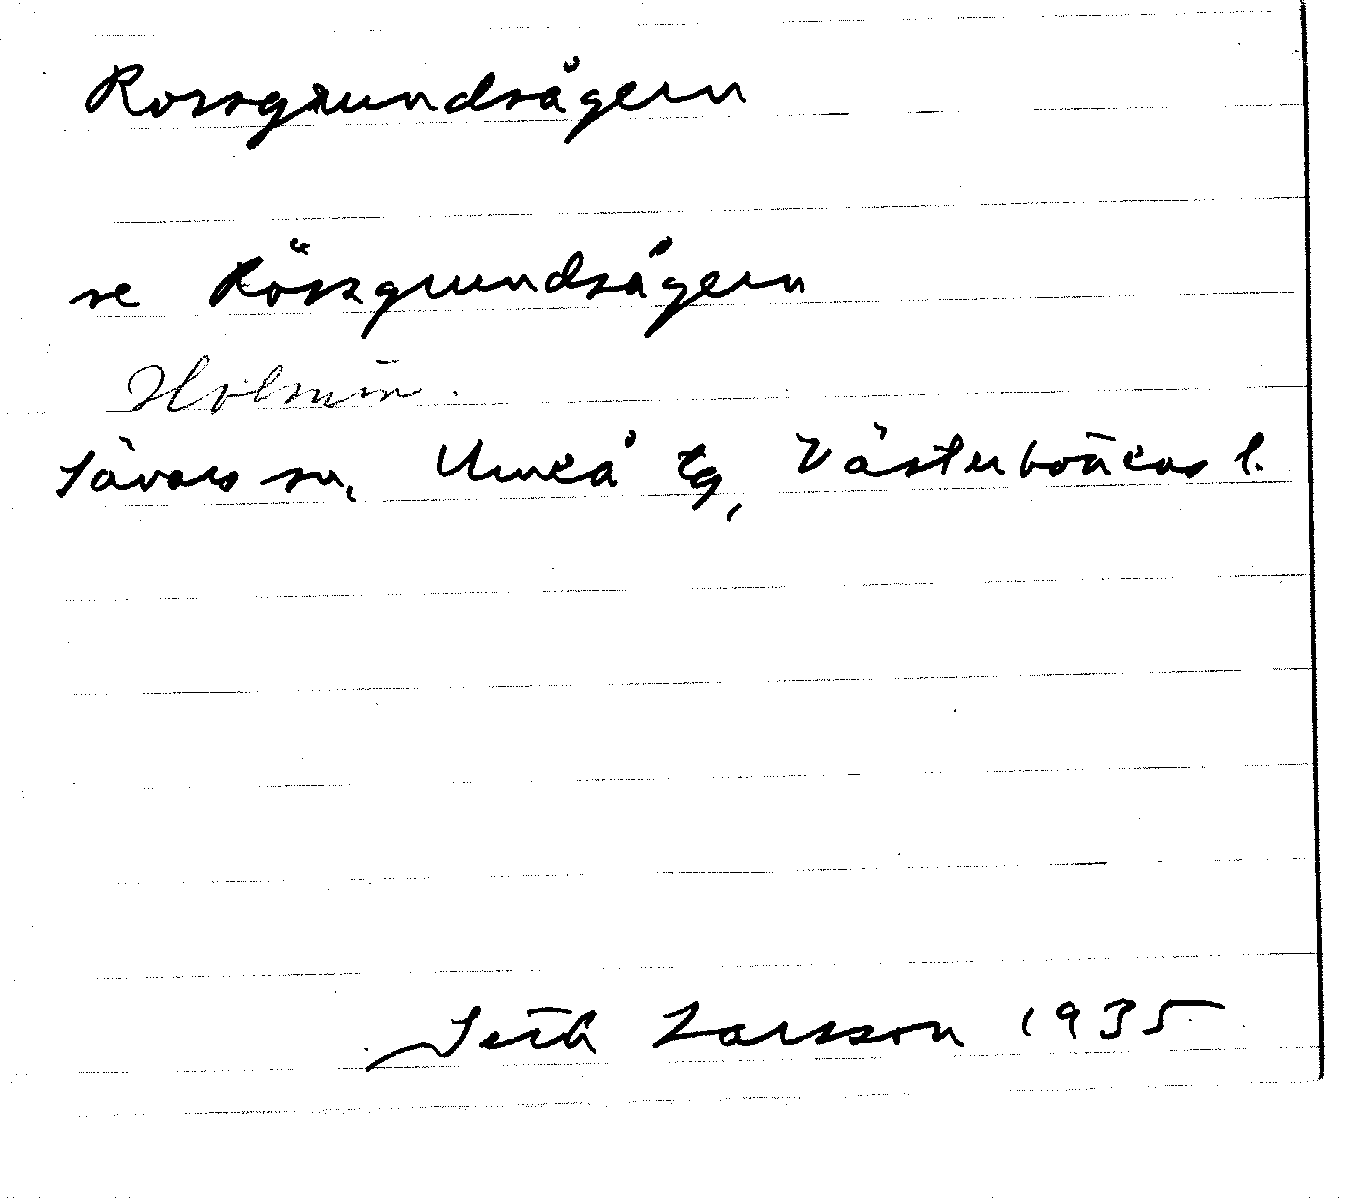 Rossgrundsågern
se Rössgrundsågern
Holmön.
Sävars sn, Umeå tg, Västerbottens l.
Seth Larsson 1935